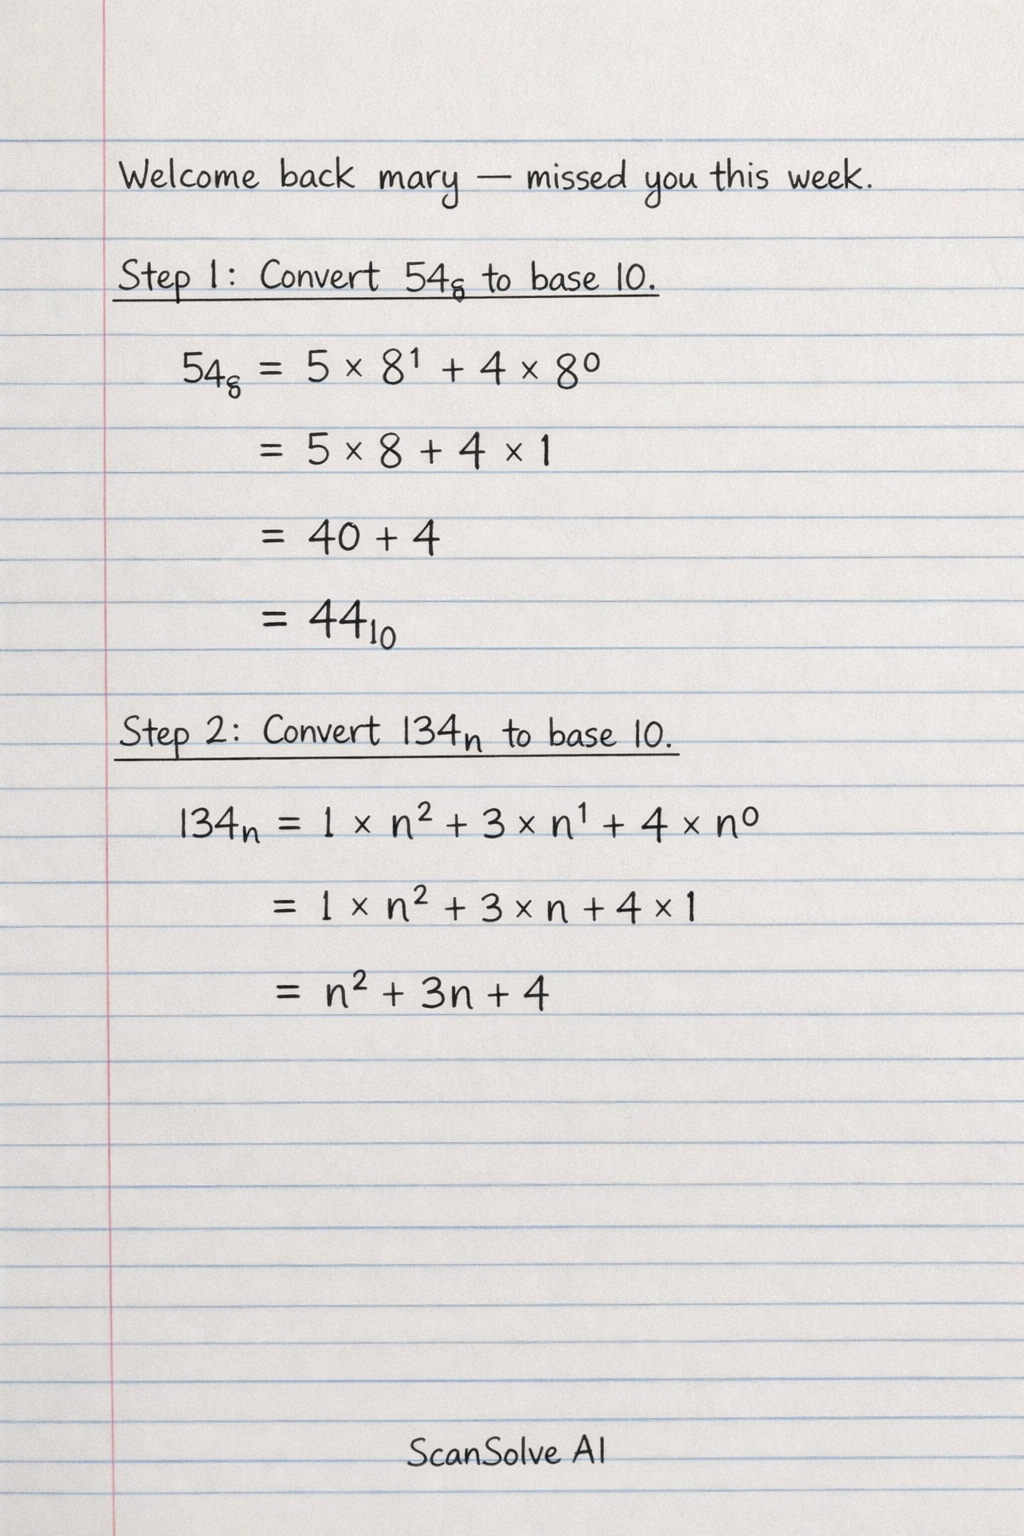 Welcome back mary — missed you this week.
Step 1: Convert 54₈ to base 10.
54₈ = 5 × 8¹ + 4 × 8⁰
= 5 × 8 + 4 × 1
= 40 + 4
= 44₁₀
Step 2: Convert 134ₙ to base 10.
134ₙ = 1 × n² + 3 × n¹ + 4 × n⁰
= 1 × n² + 3 × n + 4 × 1
= n² + 3n + 4
ScanSolve AI